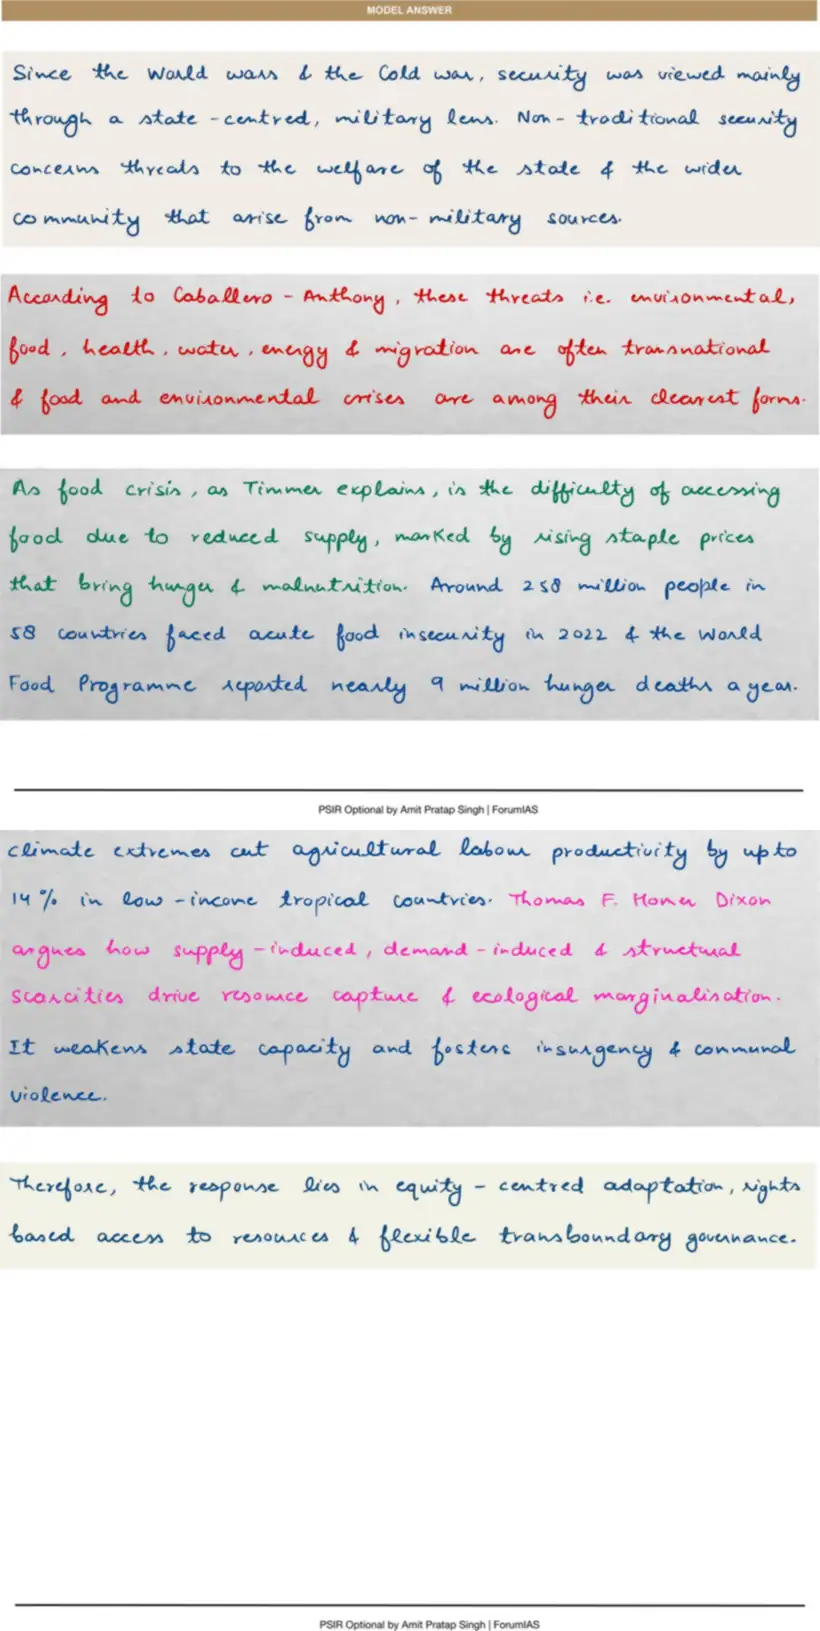 MODEL ANSWER
Since the World wars & the Cold war, security was viewed mainly
through a state-centred, military lens. Non-traditional security
concerns threats to the welfare of the state & the wider
community that arise from non-military sources.
According to Caballero-Anthony, these threats i.e. environmental,
food, health, water, energy & migration are often transnational
& food and environmental crises are among their clearest forms.
As food crisis, as Timmer explains, is the difficulty of accessing
food due to reduced supply, marked by rising staple prices
that bring hunger & malnutrition. Around 258 million people in
58 countries faced acute food insecurity in 2022 & the World
Food Programme reported nearly 9 million hunger deaths a year.
PSIR Optional by Amit Pratap Singh | ForumIAS
climate extremes cut agricultural labour productivity by upto
14% in low-income tropical countries. Thomas F. Homer Dixon
argues how supply-induced, demand-induced & structural
scarcities drive resource capture & ecological marginalisation.
It weakens state capacity and fosters insurgency & communal
violence.
Therefore, the response lies in equity-centred adaptation, rights
based access to resources & flexible transboundary governance.
PSIR Optional by Amit Pratap Singh | ForumIAS